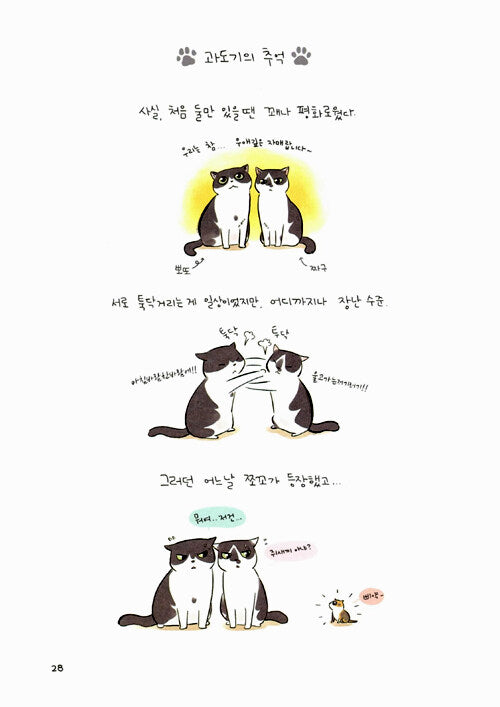 과도기의 추억
사실, 처음 둘만 있을땐 꽤나 평화로웠다.
우리는 참... 우애깊은 자매랍니다~
뽀또
짜구
서로 툭닥거리는게 일상이었지만, 어디까지나 장난 수준.
툭닥 툭닥
아침바람찬바람에!!
울고가는저기러기!!
그러던 어느날 쪼꼬가 등장했고...
뭐여..저건...
쥐새끼 아냐?
삐약~
28